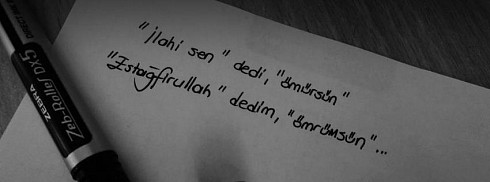 "ilahi sen" dedi, "ömürsün"
"Estağfirullah" dedim, "ömrümsün"...
ZEBRA Zeb-Roller DX5